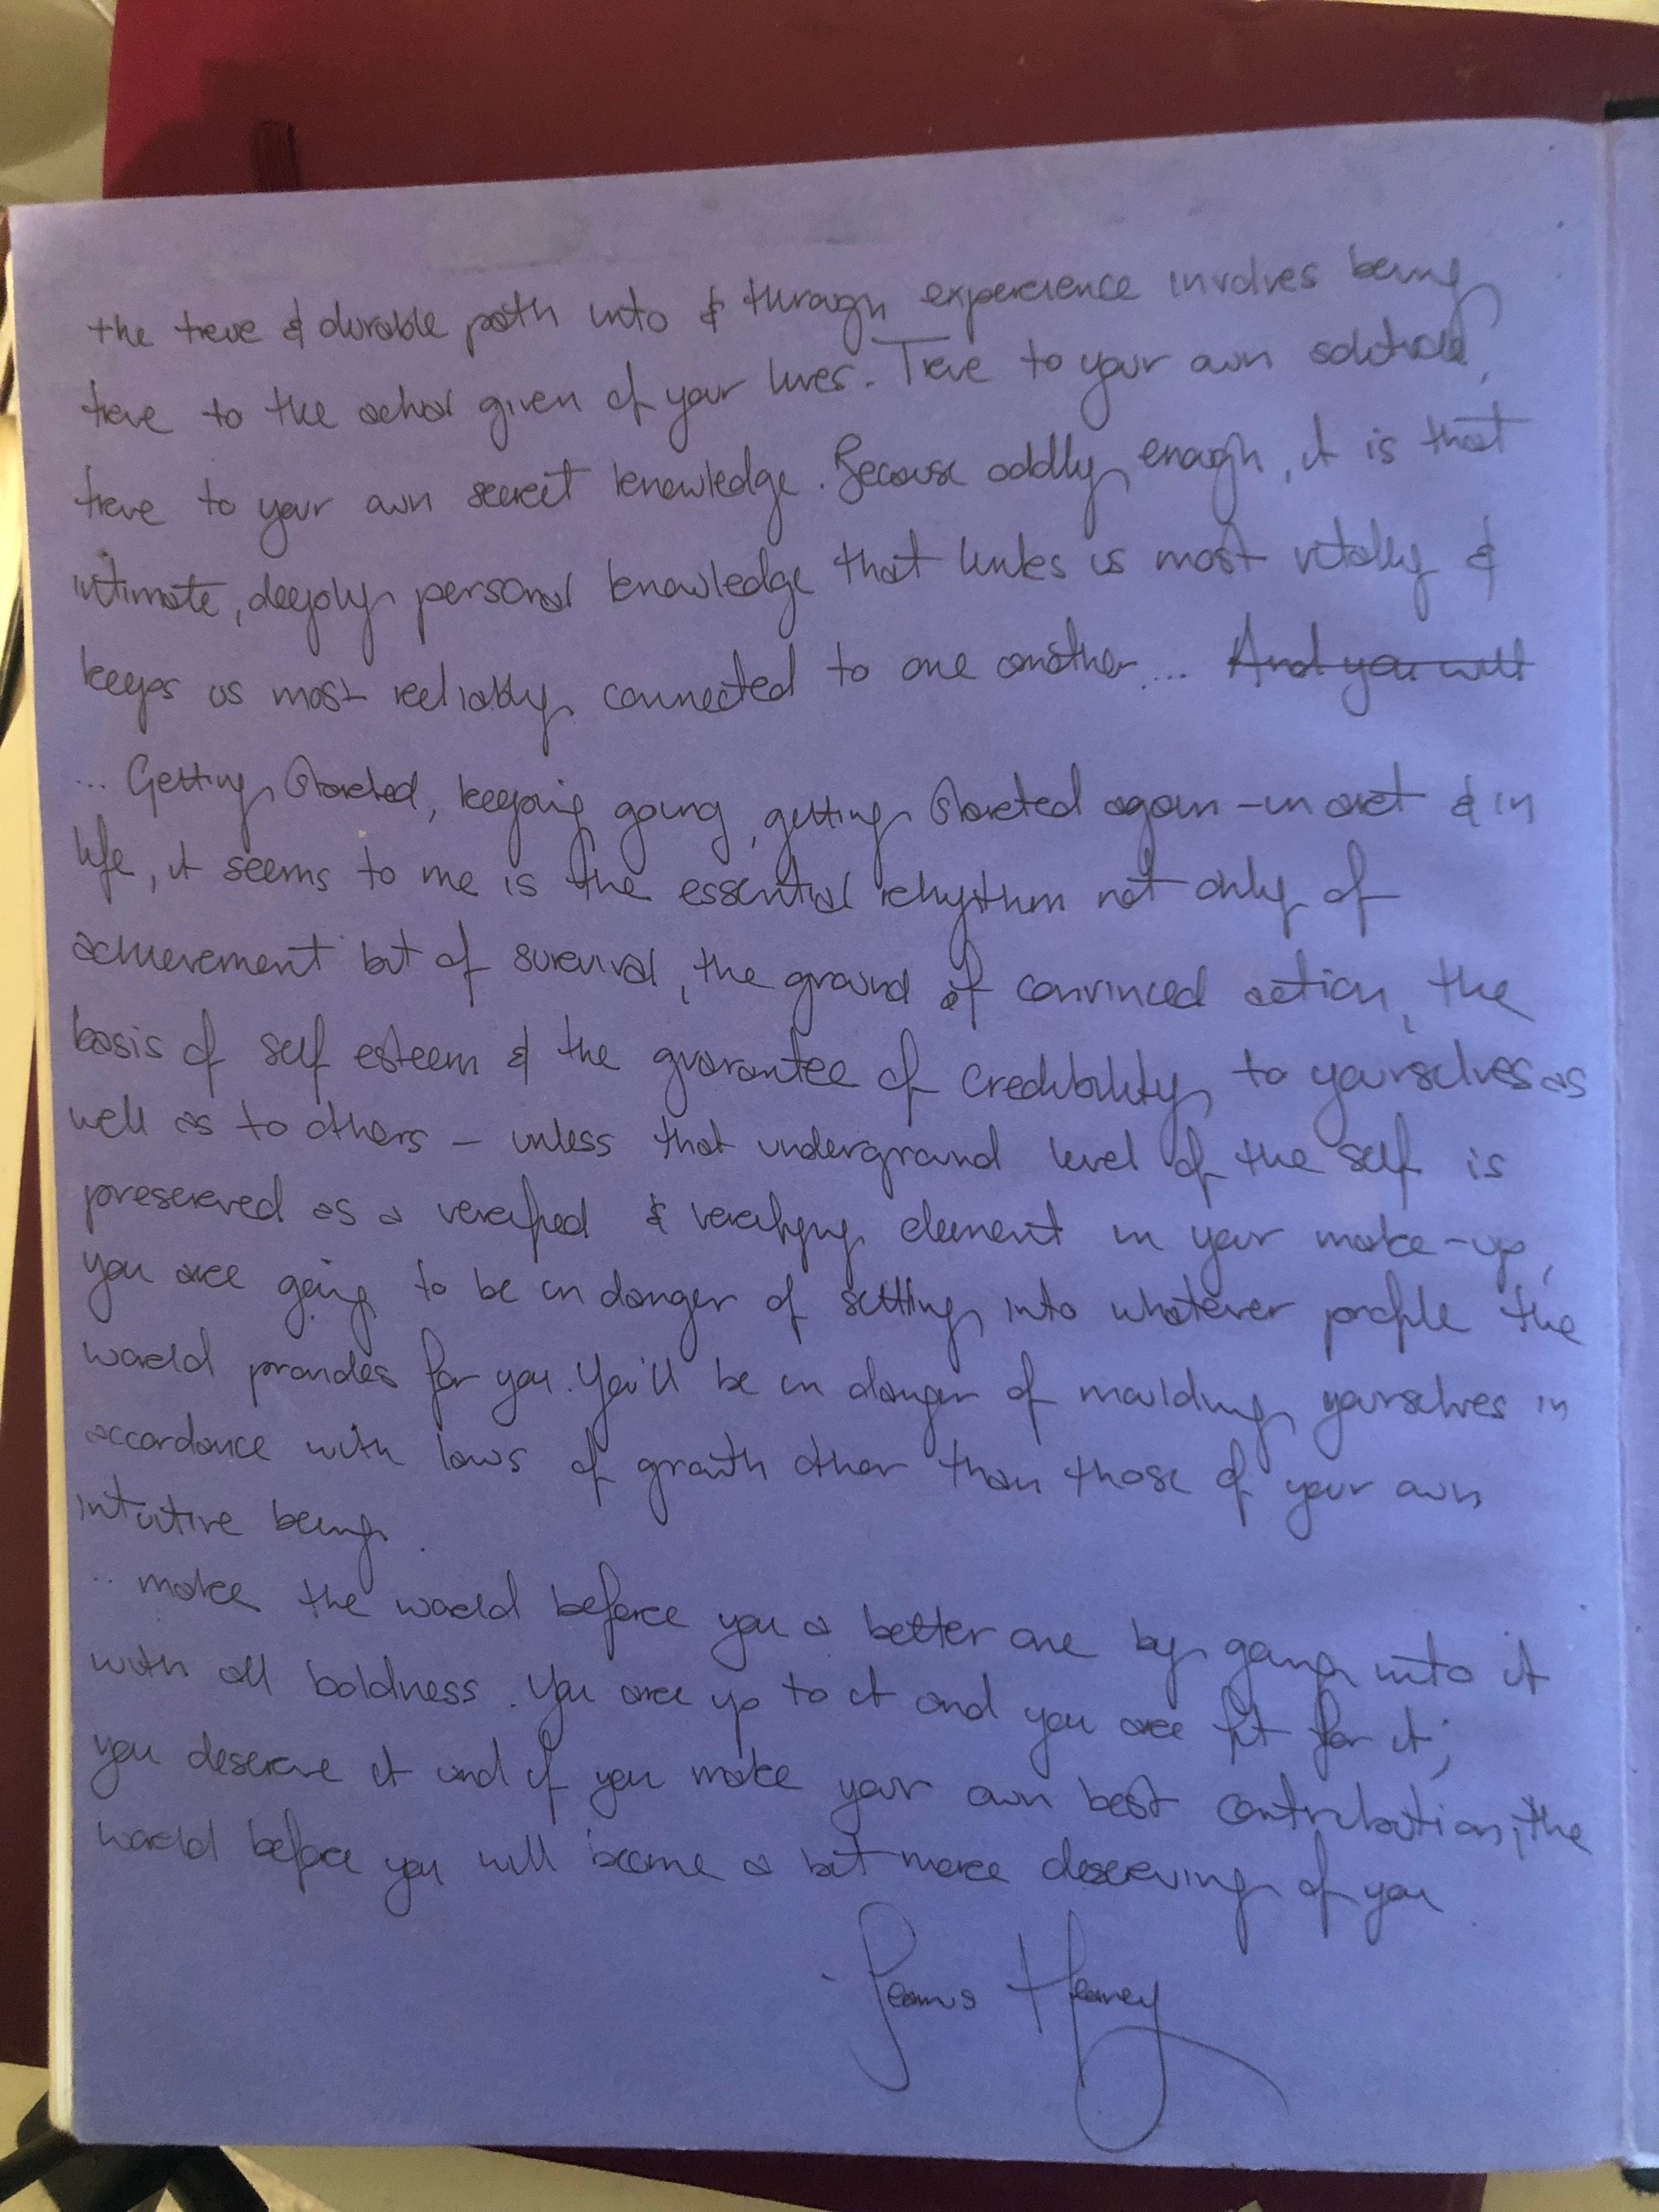 the true & durable path into & through experience involves being
true to the actual given of your lives. True to your own solitude,
true to your own secret knowledge. Because oddly enough, it is that
intimate, deeply personal knowledge that links us most vitally &
keeps us most reliably connected to one another... And you will
... Getting started, keeping going, getting started again - in art & in
life, it seems to me is the essential rhythm not only of
achievement but of survival, the ground of convinced action, the
basis of self esteem & the guarantee of credibility to yourselves as
well as to others - unless that underground level of the self is
preserved as a verified & verifying element in your make-up,
you are going to be in danger of settling into whatever profile the
world provides for you. You'll be in danger of moulding yourselves in
accordance with laws of growth other than those of your own
intuitive being.
.. make the world before you a better one by going into it
with all boldness. You are up to it and you are fit for it;
you deserve it and if you make your own best contribution, the
world before you will become a bit more deserving of you.
- Seamus Heaney